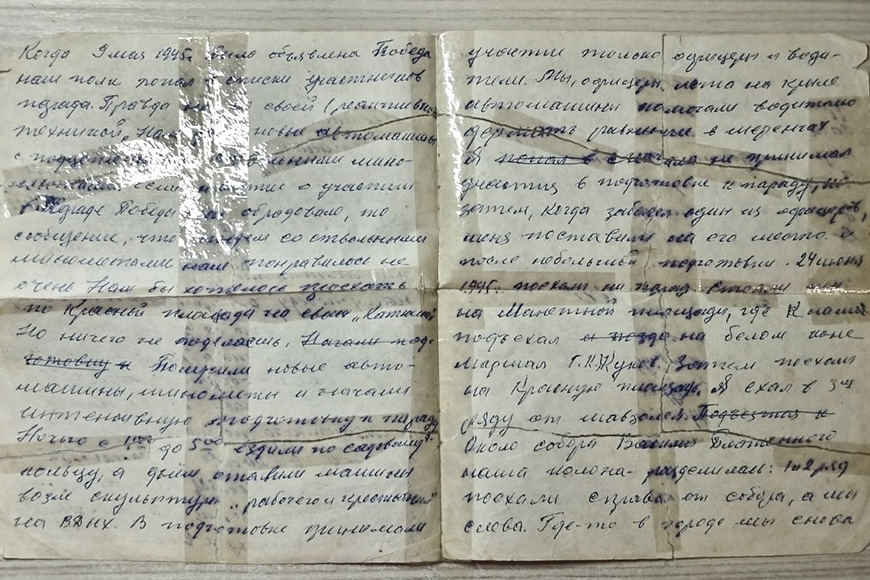 Когда 9 мая 1945г. была объявлена Победа
наш полк попал в списки участников
парада. Правда не на своей (реактивной)
техникой. Нам новые автомашины
с мино-
метами. Если участие о участии
в Параде Победы обрадовало, то
сообщение, что едем со ствольными
миномётами нам понравилось не
очень. Нам бы хотелось проехать
по Красной площади на своих "Катюшах"
Но ничего не поделаешь. Начали подг-
отовку к Получили новые авто-
машины, миномёты и начали
интенсивную подготовку к параду
Ночью с 1:00 до 5:00 ездили по садовому
кольцу, а днём ставили машины
возле скульптуры "рабочего и крестьянки"
на ВДНХ. В подготовке принимали
участие только офицеры и води-
тели. Мы, офицеры, лёжа на крыле
автомашины помогали водителю
держать равнение в шеренгах
Я попал в не принимал
участия в подготовке к параду, но
затем, когда заболел один из офицеров,
меня поставили на его место и
после небольшой подготовки 24 июня
1945г. поехали на парад. Стояли мы
на Манежной площади, где к нам
подъехал на белом коне
маршал Г.К. Жуков. Затем поехали
на Красную площадь. Я ехал в 3м
ряду от мавзолея. Подъезжая к
Около собора Василия Блаженного
наша колона разделилась: 1 и 2 ряд
поехали справа от собора, а мы
слева. Где-то в городе мы снова